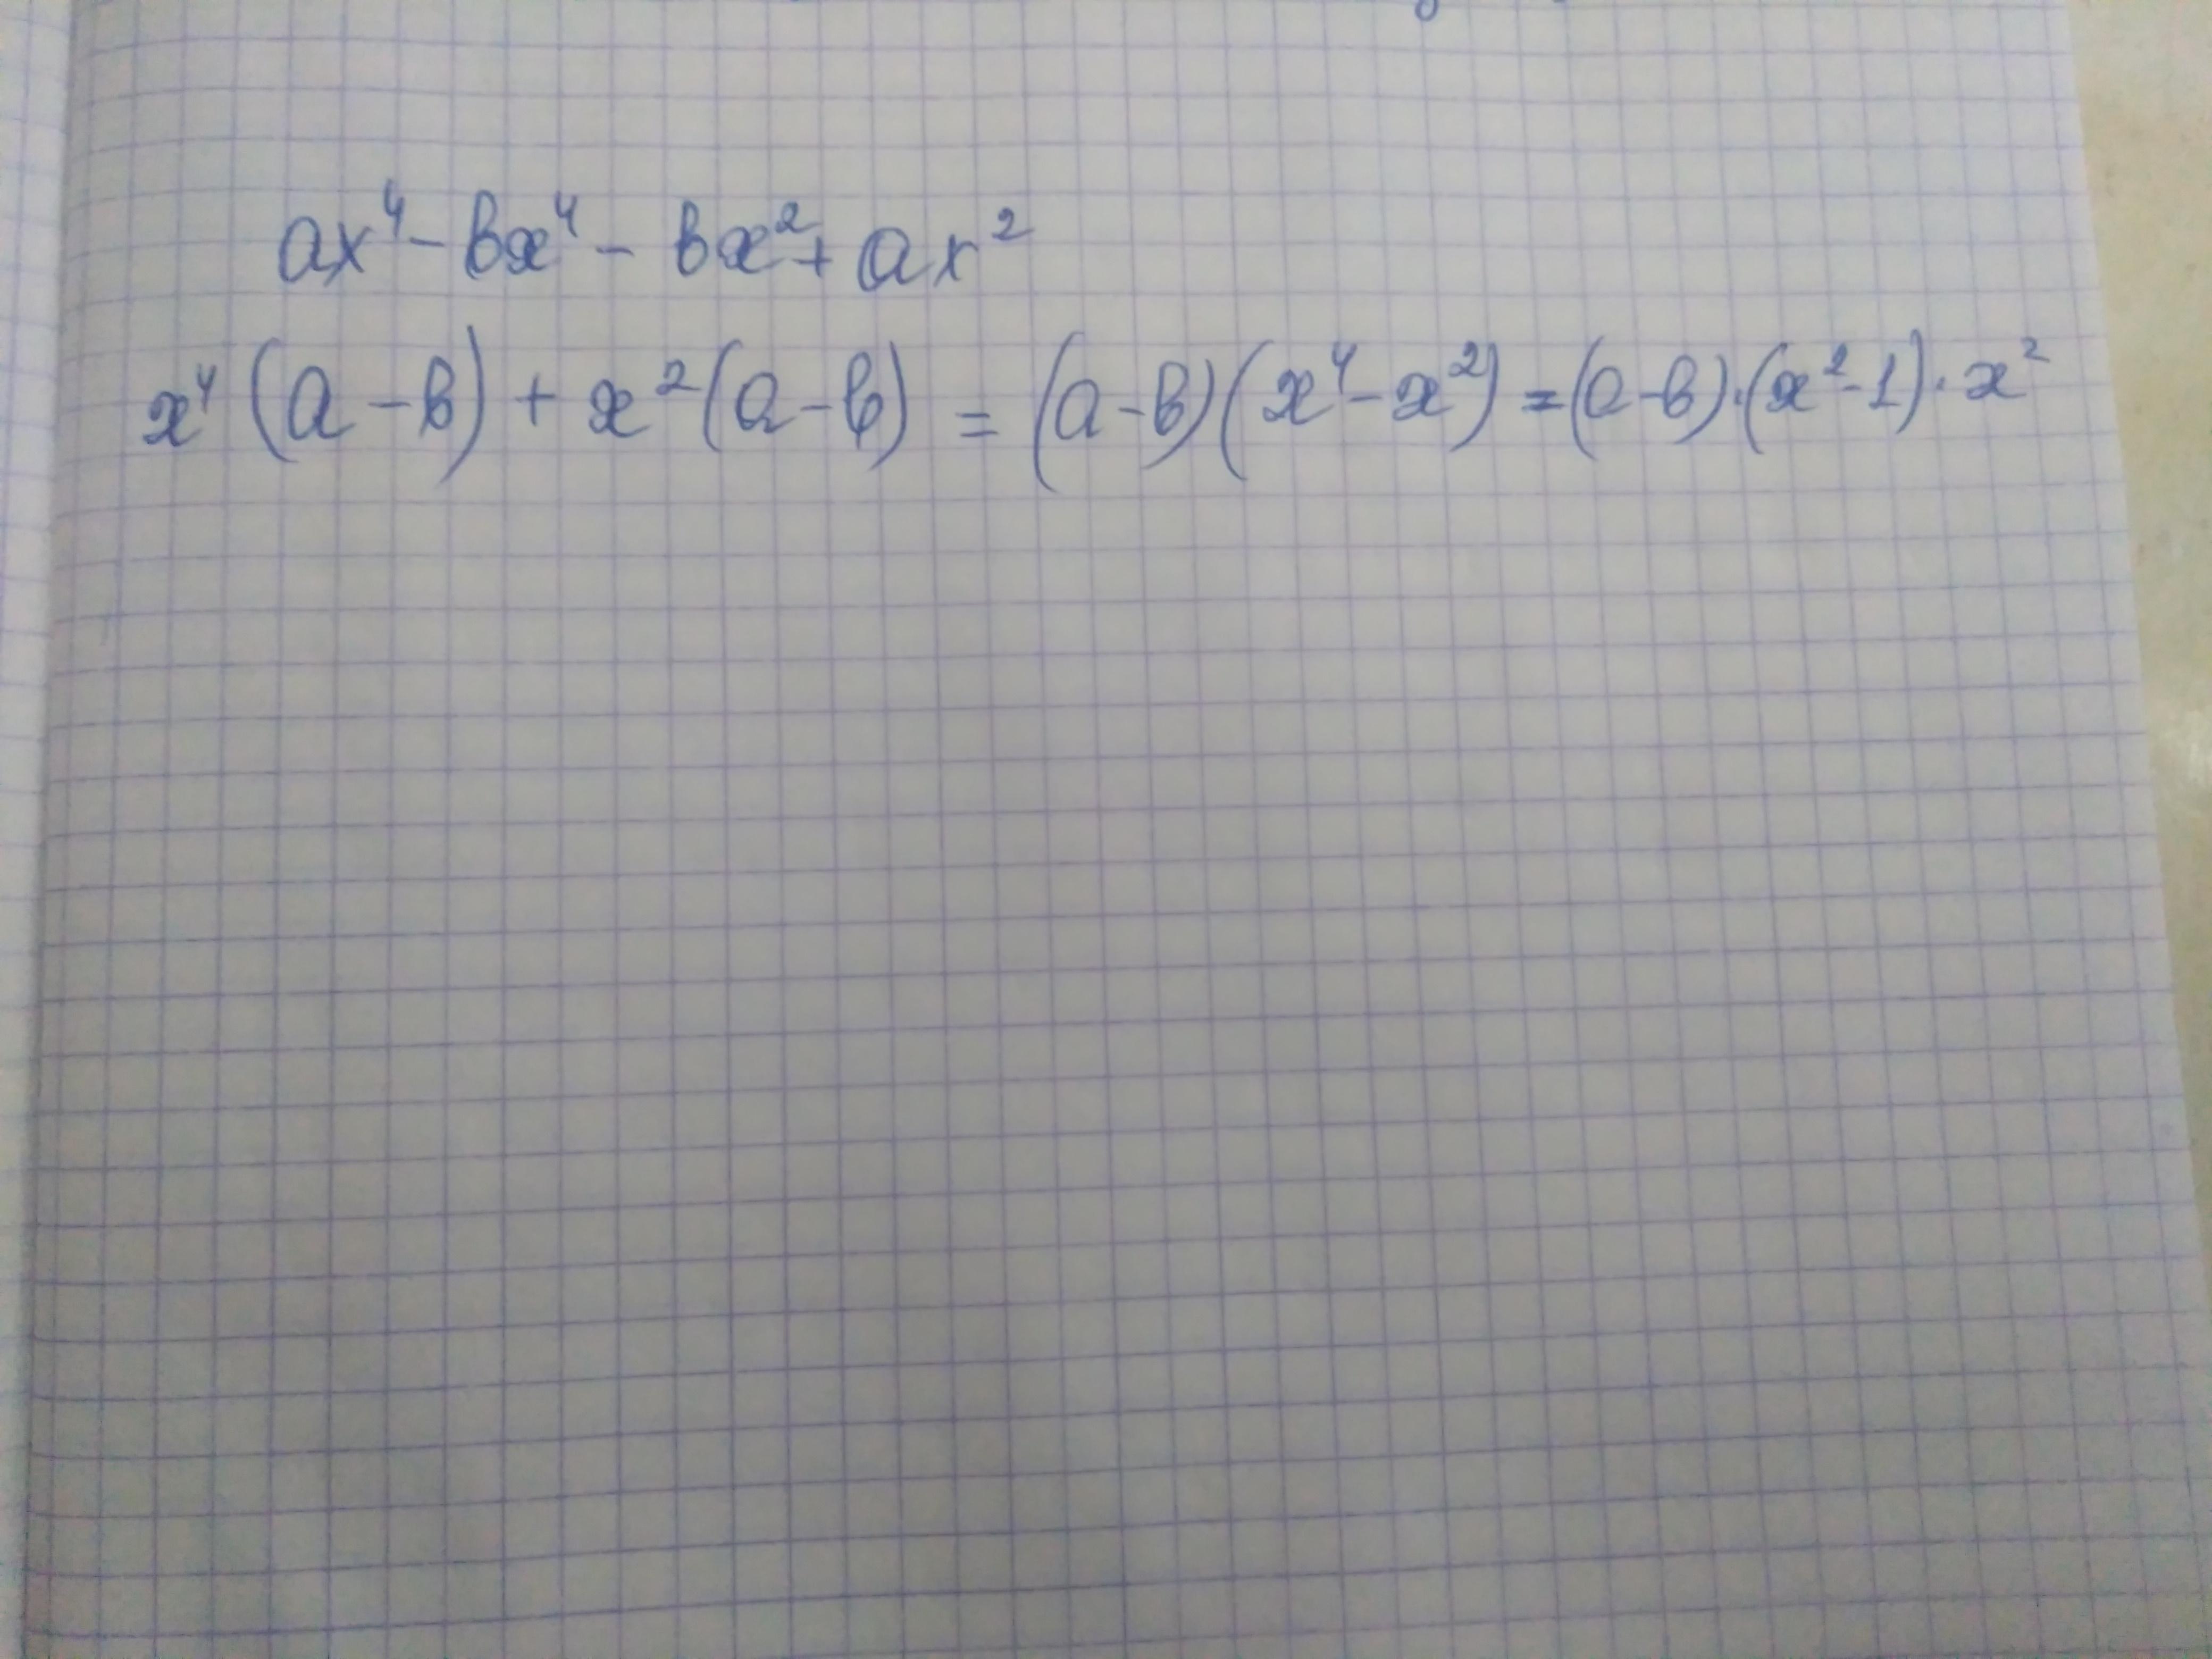 ax⁴ - bx⁴ - bx² + ax²
x⁴ (a - b) + x² (a - b) = (a - b) (x⁴ - x²) = (a - b) · (x² - 1) · x²